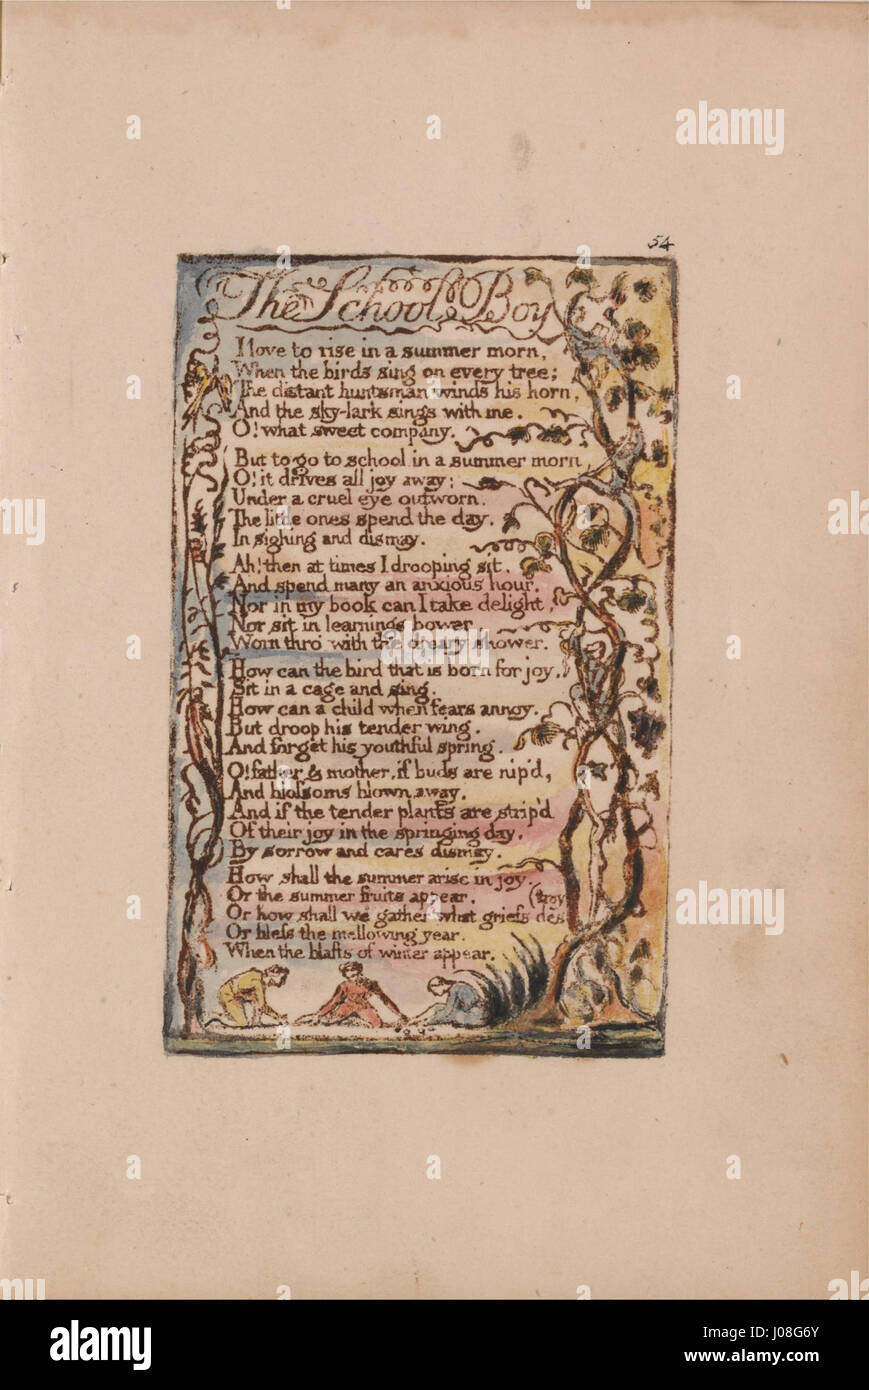 54
The School Boy
I love to rise in a summer morn,
When the birds sing on every tree;
The distant huntsman winds his horn,
And the sky-lark sings with me.
O! what sweet company.
But to go to school in a summer morn
O! it drives all joy away;
Under a cruel eye outworn.
The little ones spend the day.
In sighing and dismay.
Ah! then at times I drooping sit.
And spend many an anxious hour.
Nor in my book can I take delight,
Nor sit in learnings bower
Worn thro' with the dreary shower.
How can the bird that is born for joy,
Sit in a cage and sing.
How can a child when fears annoy.
But droop his tender wing.
And forget his youthful spring.
O! father & mother, if buds are nip'd,
And blossoms blown away.
And if the tender plants are strip'd
Of their joy in the springing day,
By sorrow and cares dismay,
How shall the summer arise in joy
Or the summer fruits appear.
(troy
Or how shall we gather what griefs des
Or bless the mellowing year.
When the blasts of winter appear.
a
alamy
alamy
Image ID: J08G6Y
www.alamy.com